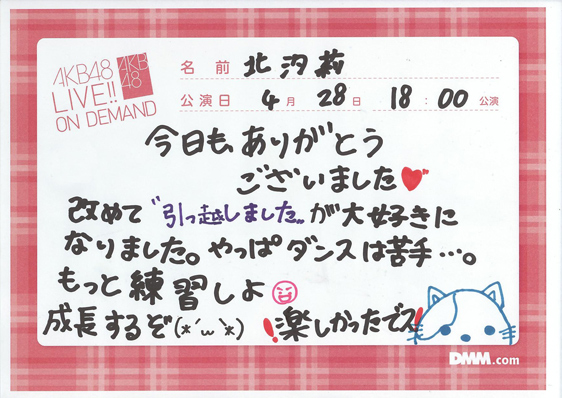 AKB48
LIVE!!
ON DEMAND
AKB
48
名前 北汐莉
公演日 4月28日 18:00公演
今日も、ありがとう
ございました
改めて"引っ越しました"が大好きに
なりました。やっぱダンスは苦手…。
もっと練習しよ
成長するぞ(*´ω`*) !楽しかったでス!
DMM.com